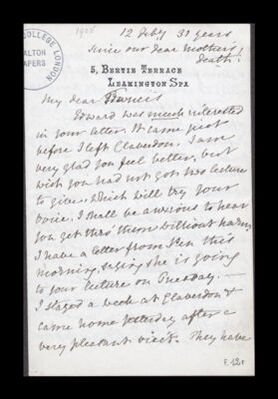 COLLEGE LONDON
GALTON
PAPERS
1905
12 Feby 31 years
since our dear Mother's
death!
5, BERTIE TERRACE
LEAMINGTON SPA
My dear Francis
Edward was much interested
in your letter. It came just
before I left Claverdon. I am
very glad you feel better, but
wish you had not got two lectures
to give, which will try your
voice. I shall be anxious to hear
you get thro' them without harm.
I have a letter from this
morning, saying she is going
to your lecture on Tuesday. —
I stayed a week at Claverdon &
came home yesterday after a
very pleasant visit. They have
F.12r